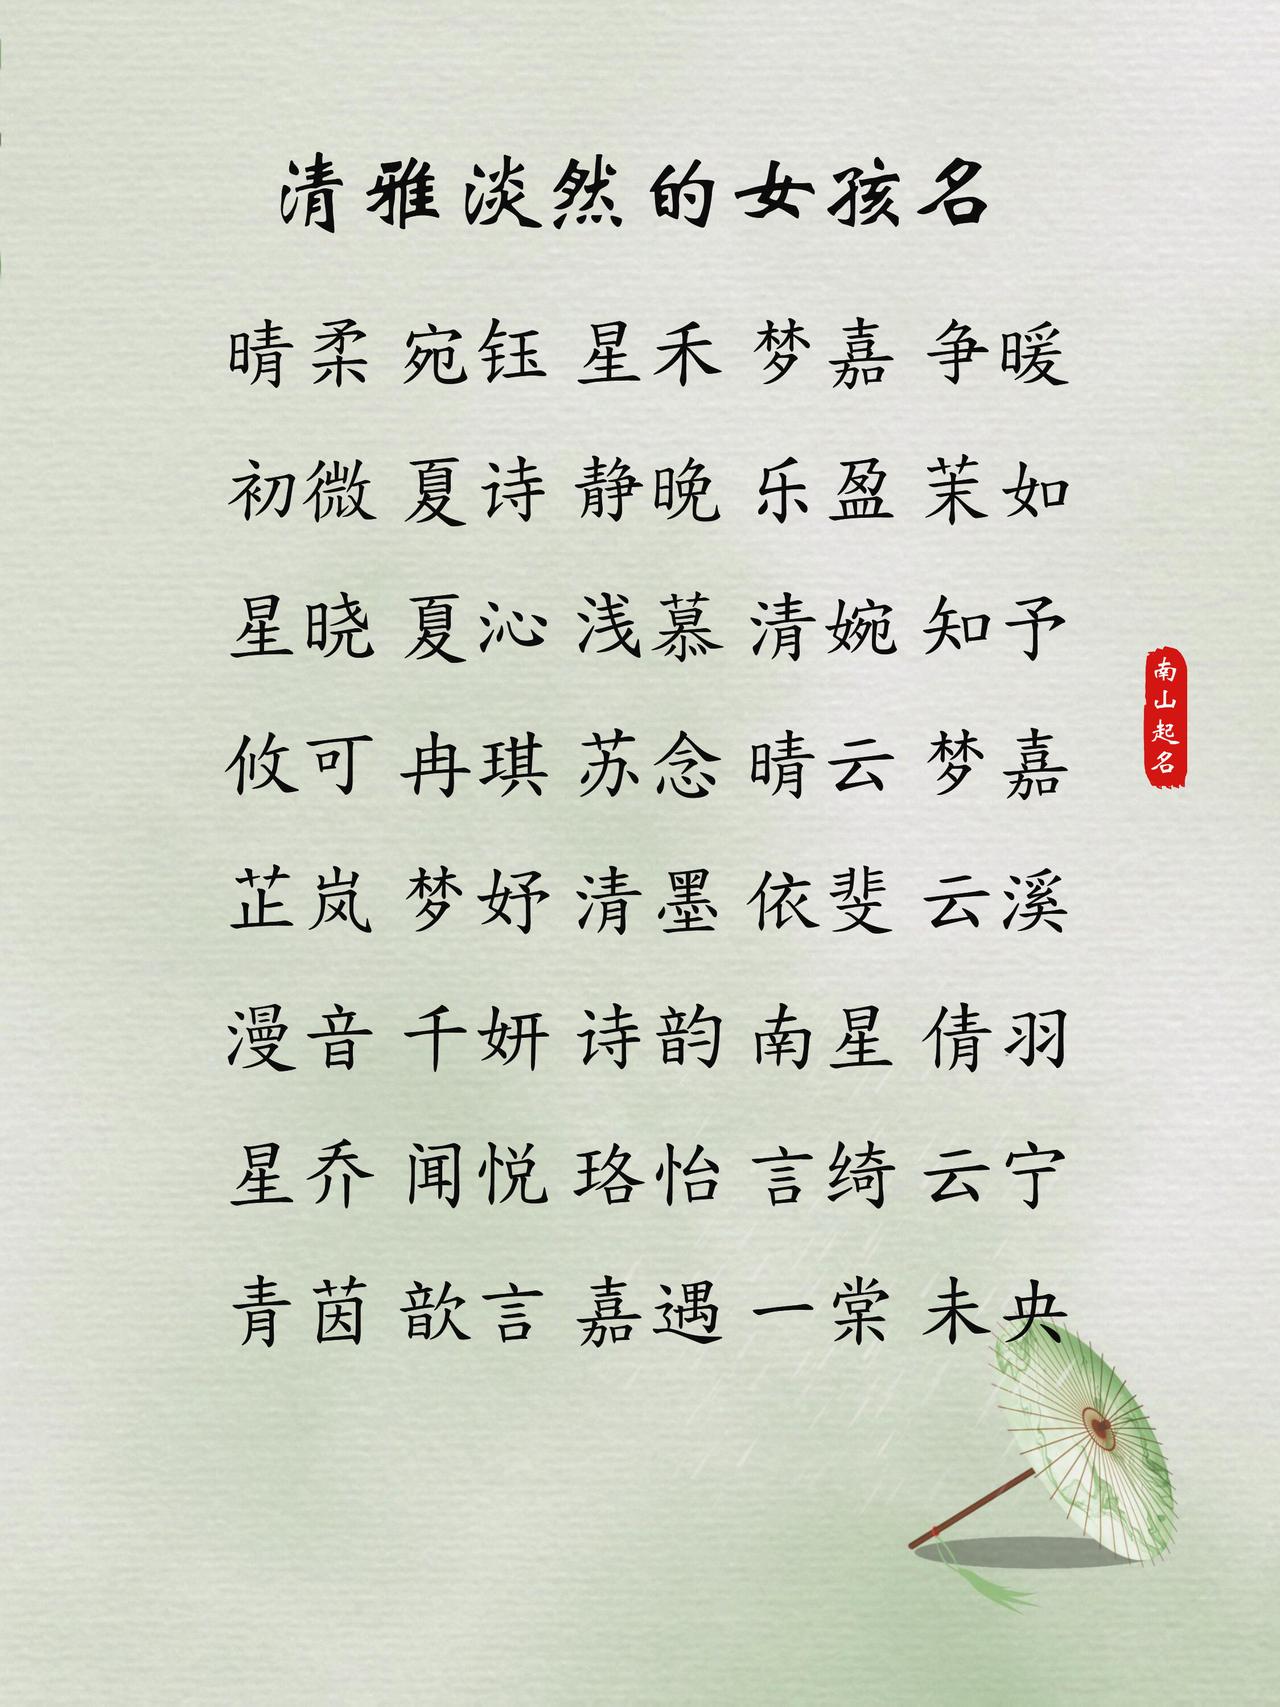 清雅淡然的女孩名
晴柔 宛钰 星禾 梦嘉 争暖
初微 夏诗 静晚 乐盈 茉如
星晓 夏沁 浅慕 清婉 知予
攸可 冉琪 苏念 晴云 梦嘉
芷岚 梦妤 清墨 依斐 云溪
漫音 千妍 诗韵 南星 倩羽
星乔 闻悦 珞怡 言绮 云宁
青茵 歆言 嘉遇 一棠 未央
南山起名